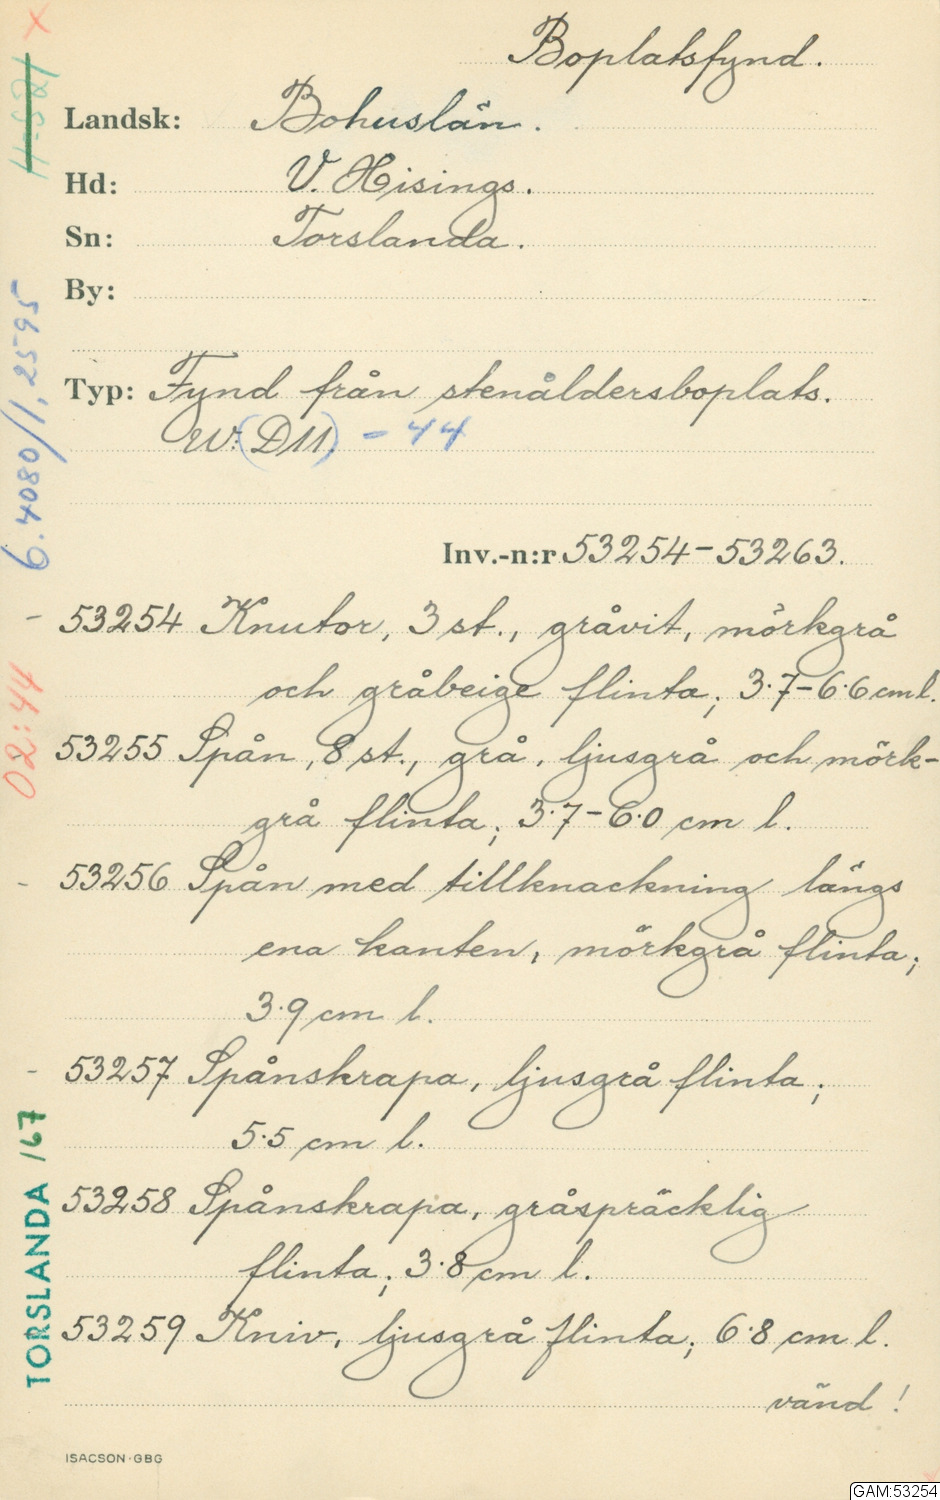 Boplatsfynd.
Landsk: Bohuslän.
Hd: V. Hisings.
Sn: Torslanda.
By:
Typ: Fynd från stenåldersboplats.
W:(D11) - 44
Inv.-n:r 53254-53263.
53254 Knutor, 3 st., gråvit, mörkgrå
och gråbeige flinta; 3·7-6·6 cm l.
53255 Spån, 8 st., grå, ljusgrå och mörk-
grå flinta; 3·7-6·0 cm l.
53256 Spån med tillknackning längs
ena kanten, mörkgrå flinta;
3·9 cm l.
53257 Spånskrapa, ljusgrå flinta;
5·5 cm l.
53258 Spånskrapa, gråspräcklig
flinta; 3·8 cm l.
53259 Kniv, ljusgrå flinta; 6·8 cm l.
vänd!
ISACSON·GBG
x
6.4080/1,2595
02:44
TORSLANDA 167
GAM:53254